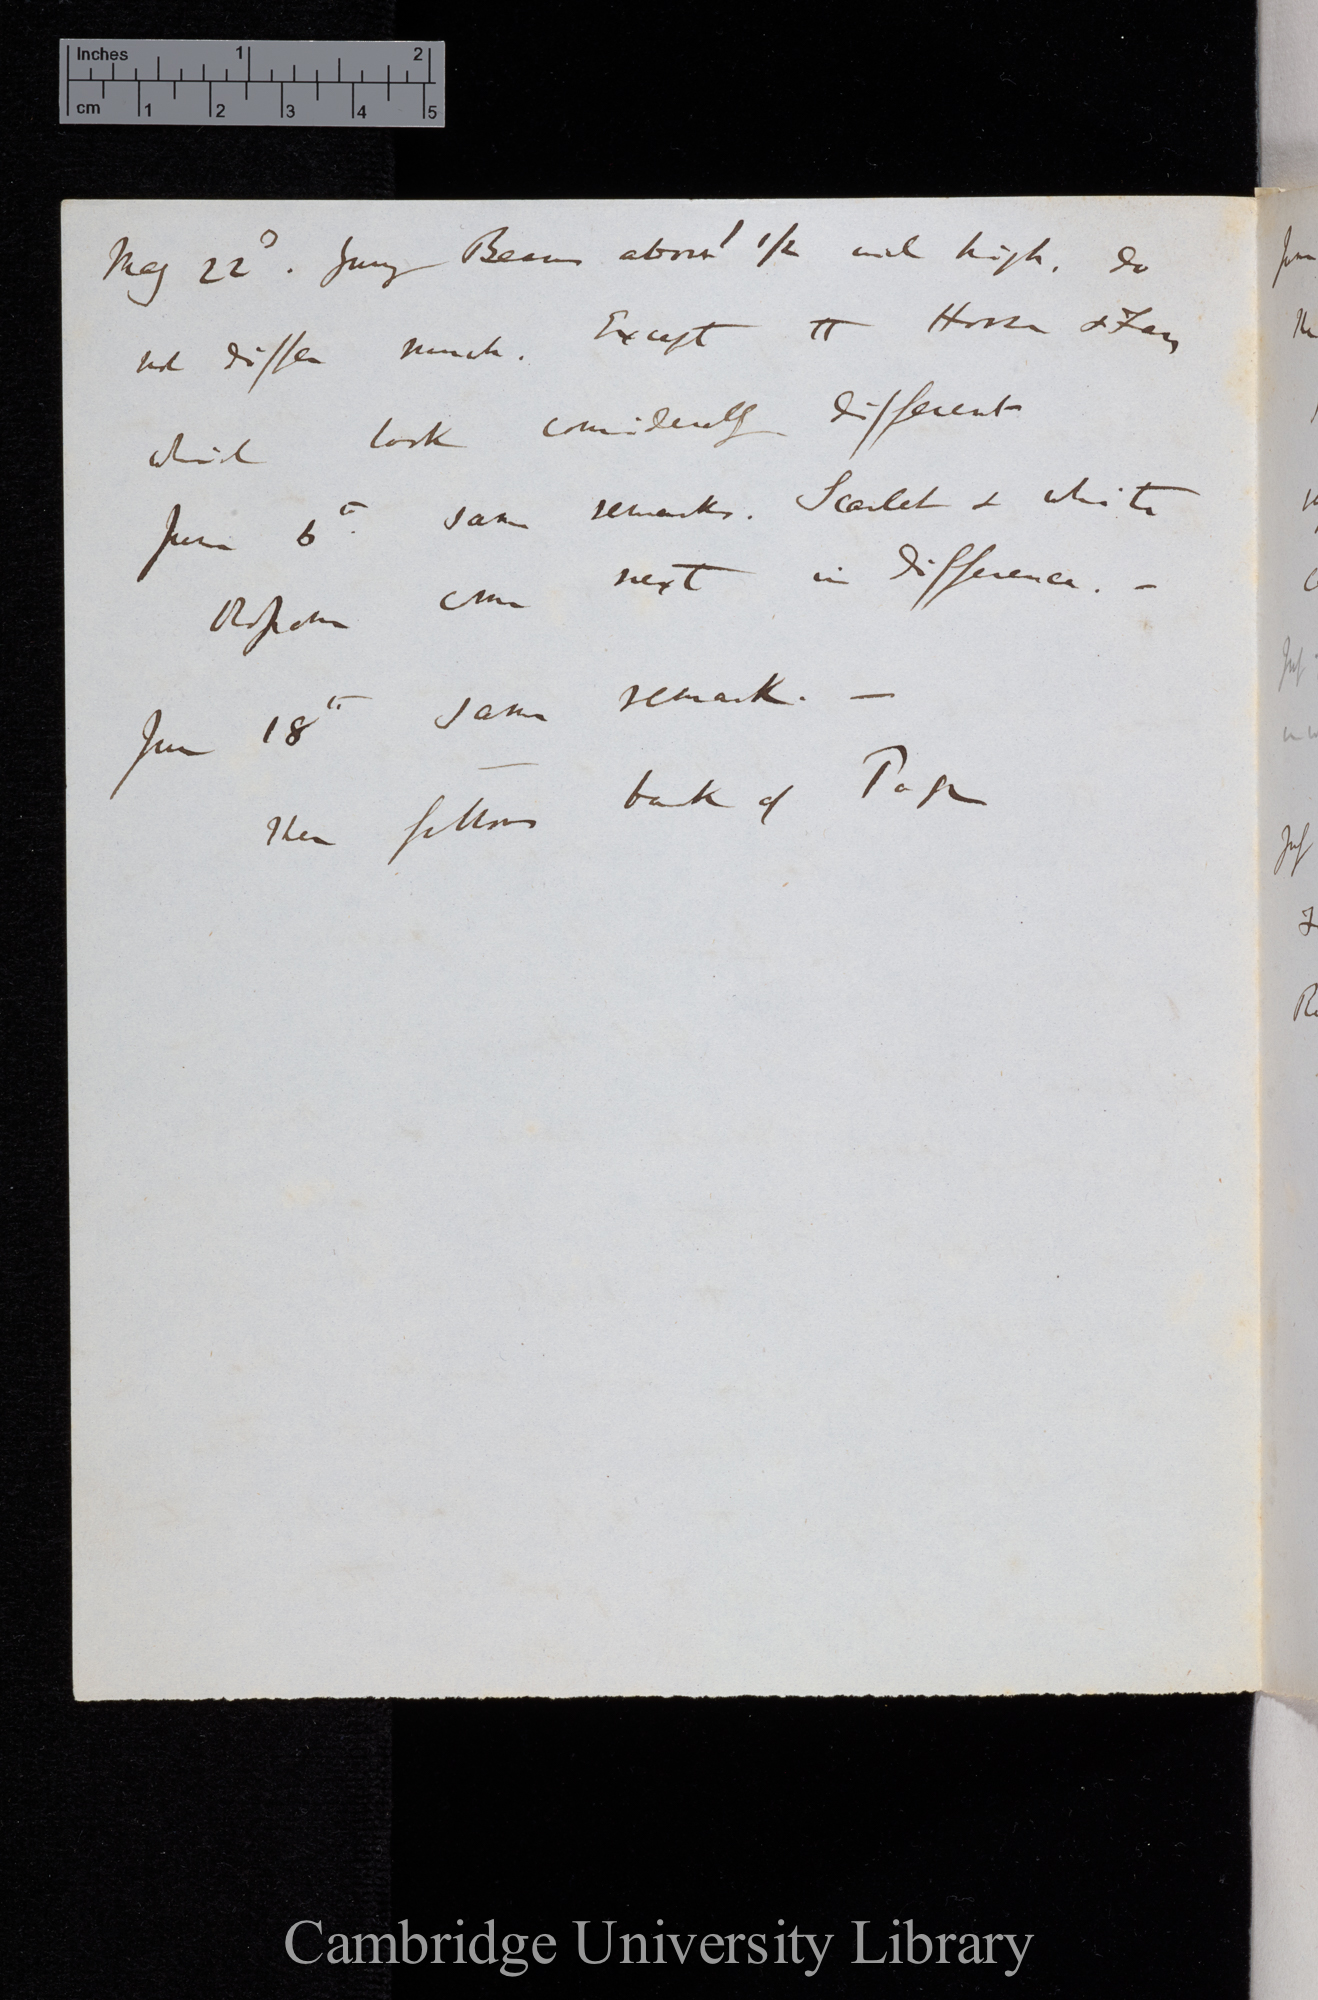 Inches 1 2
cm 1 2 3 4 5
May 22ᵈ. Young Beans about 1/2 inch high. do
not differ much. Except the Horse & Fan,
which look considerably different
June 6th same remarks. Scarlet & white
come next in difference. —
June 18th same remark. —
Then follows back of Page
Cambridge University Library